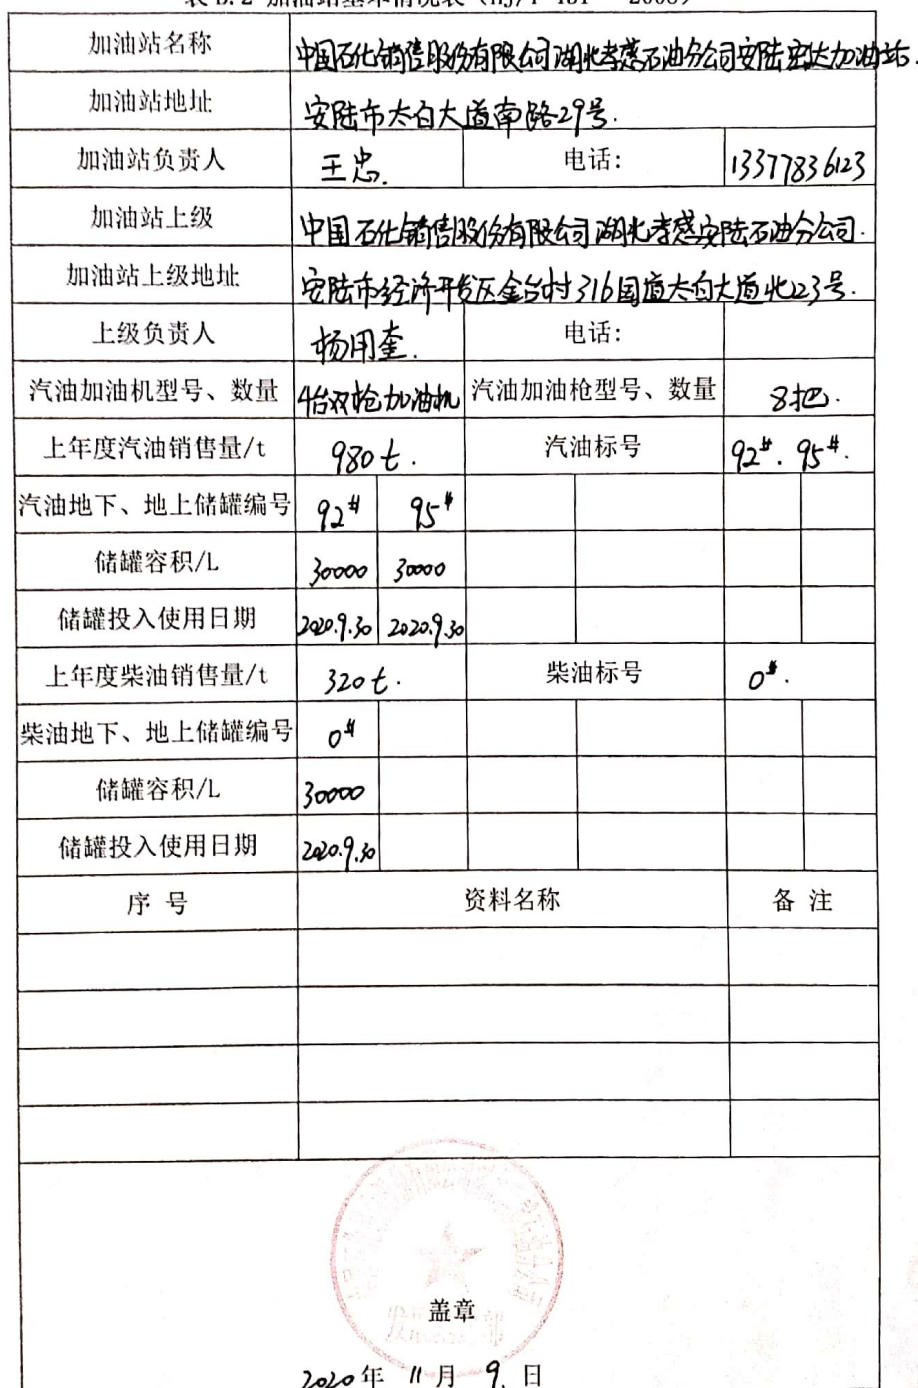 表 B.2 加油站基本情况表 (HJ/T 431—2008)
加油站名称 中国石化销售股份有限公司湖北孝感石油分公司安陆宏达加油站.
加油站地址 安陆市太白大道南路29号.
加油站负责人 王忠. 电话: 13377836123
加油站上级 中国石化销售股份有限公司湖北孝感安陆石油分公司.
加油站上级地址 安陆市经济开发区金台村316国道太白大道北223号.
上级负责人 杨用奎. 电话:
汽油加油机型号、数量 4台双枪加油机 汽油加油枪型号、数量 8把.
上年度汽油销售量/t 980t. 汽油标号 92#. 95#.
汽油地下、地上储罐编号 92# 95#
储罐容积/L 30000 30000
储罐投入使用日期 2020.9.30 2020.9.30
上年度柴油销售量/t 320t. 柴油标号 0#.
柴油地下、地上储罐编号 0#
储罐容积/L 30000
储罐投入使用日期 2020.9.30
序 号 资料名称 备 注
盖章
2020年 11月 9.日